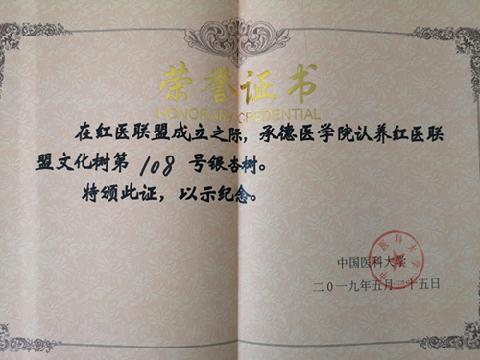 荣誉证书
HONORARY CREDENTIAL
在红医联盟成立之际，承德医学院认养红医联
盟文化树第 108 号银杏树。
特颁此证，以示纪念。
中国医科大学
二0一九年五月二十五日